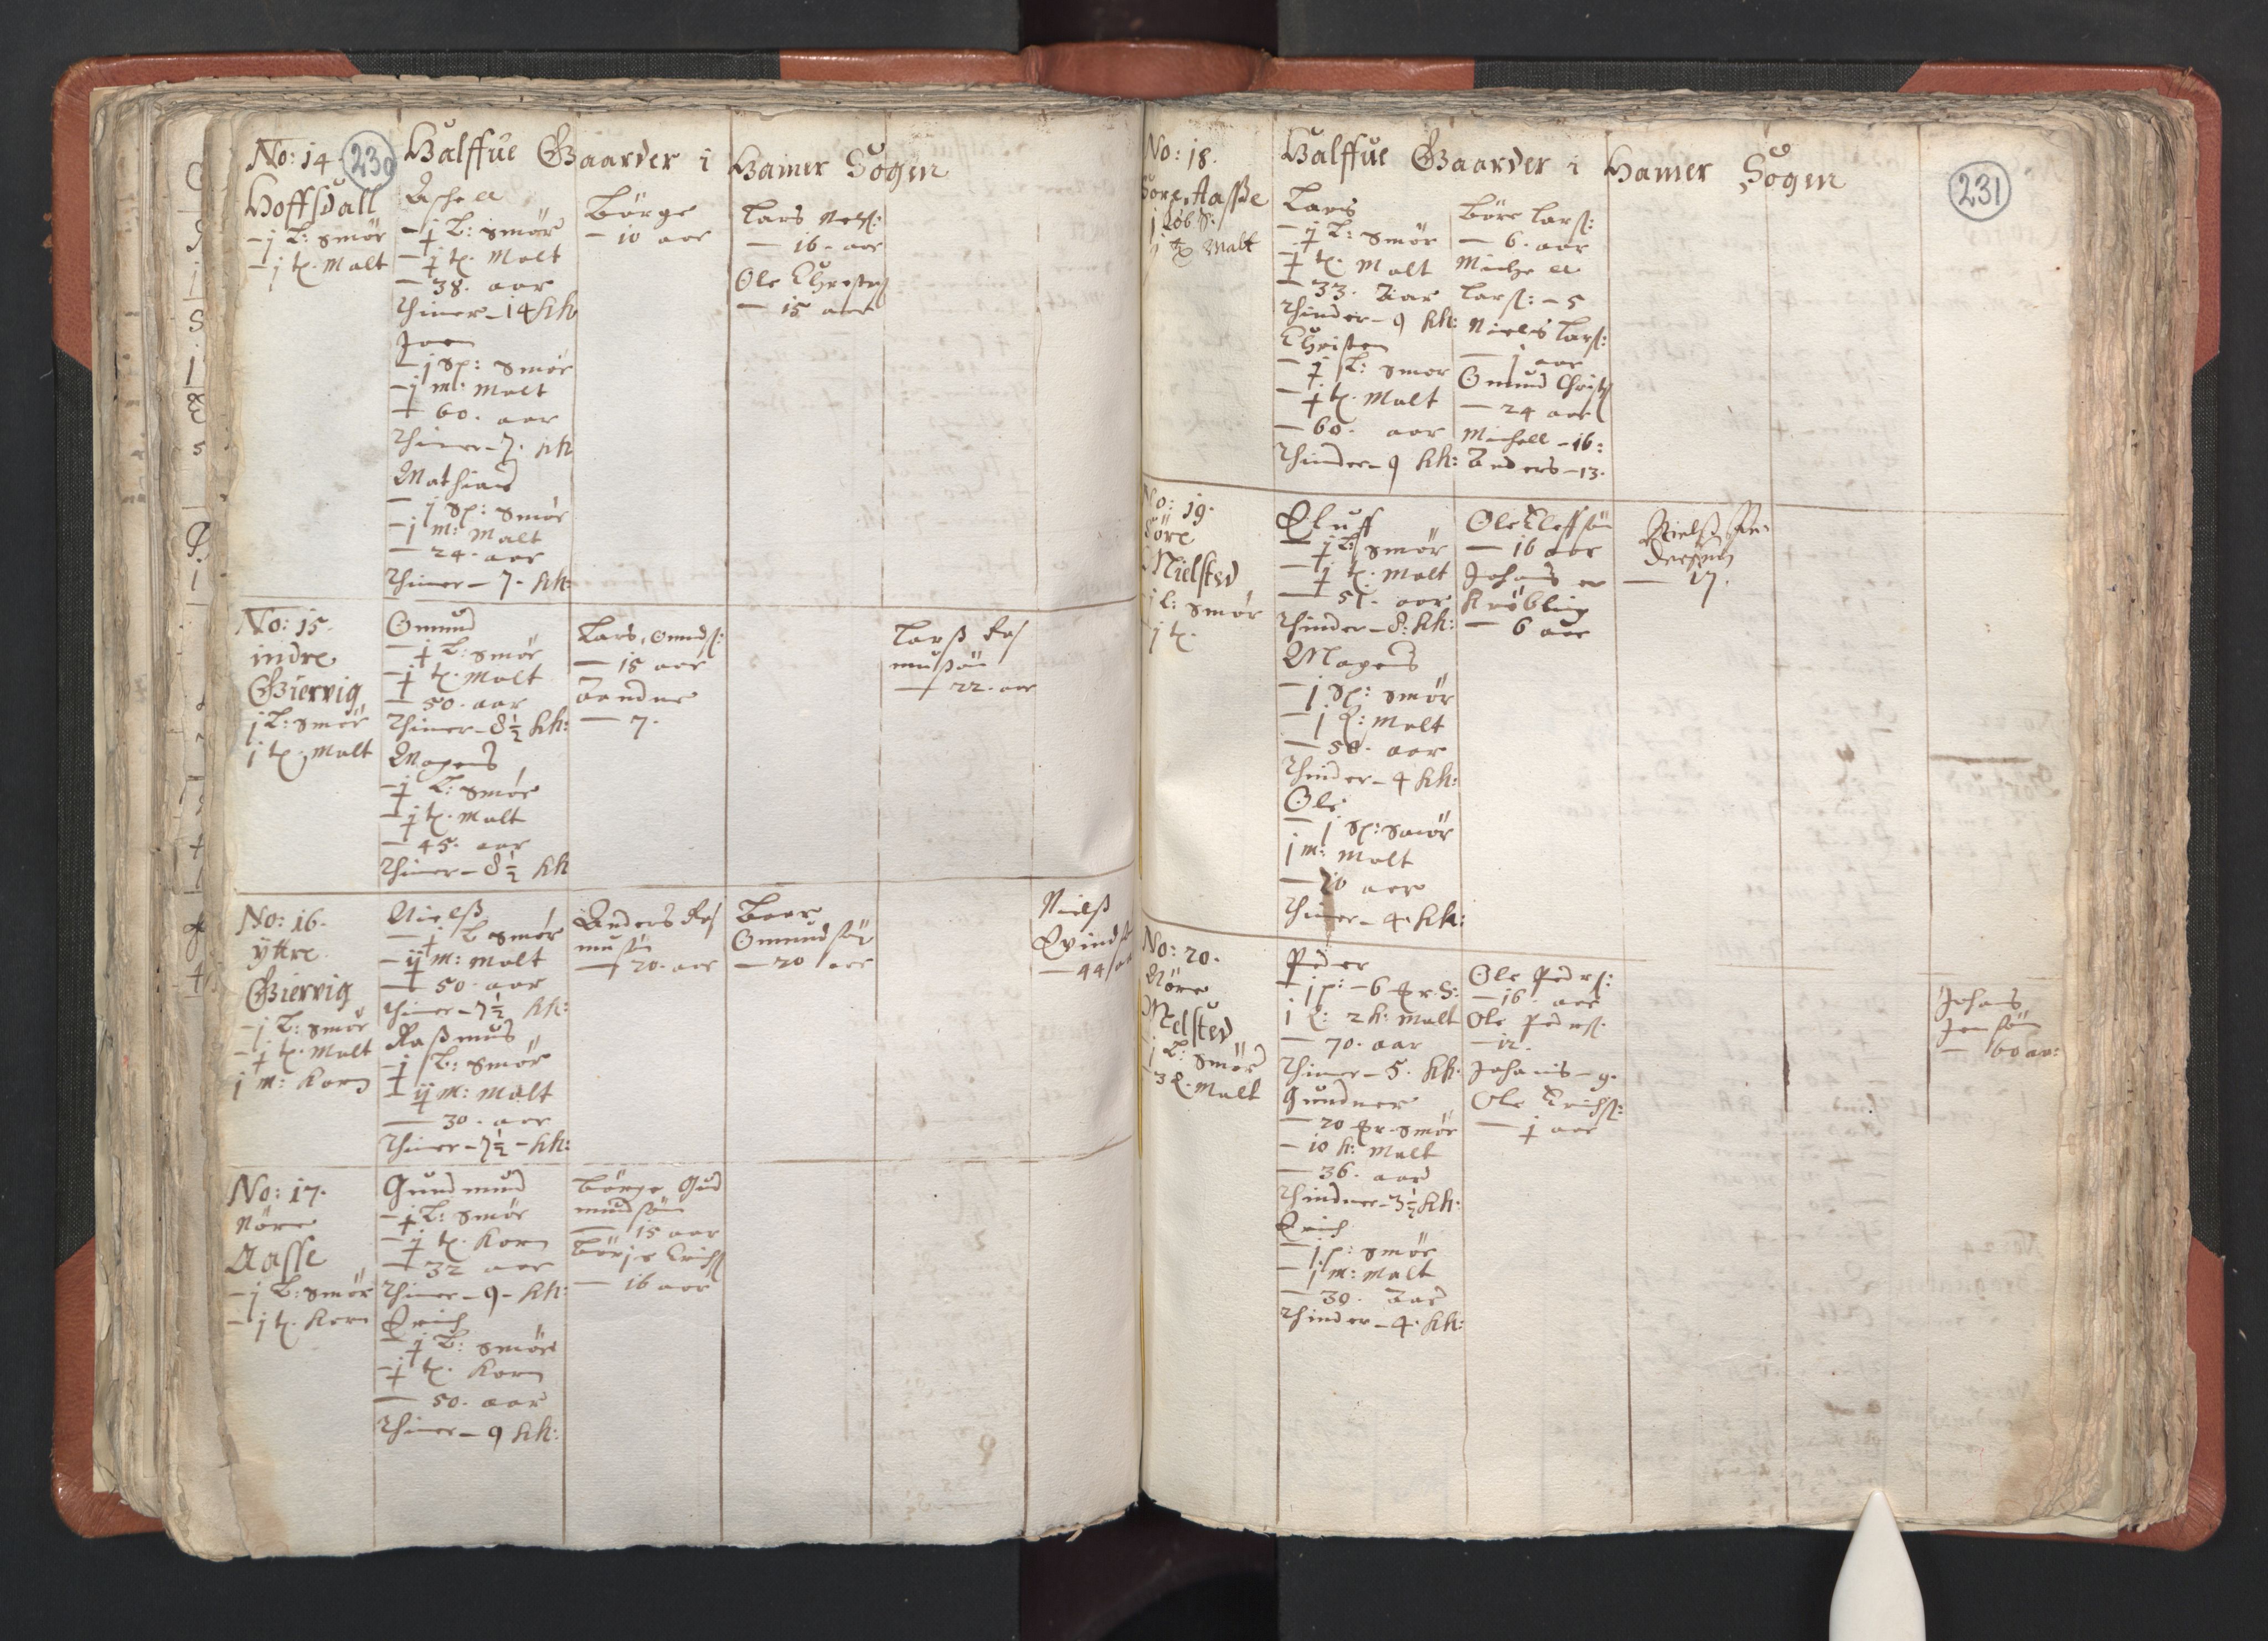 No: 14. 230 Halffue Gaarder i Hamer Sogen
Hoffsdall
- j L: smör
- j t. Malt
Aschell
- ½ L: smör
- ½ t. Malt
- 38. aar
Thiner - 14 kh
Joen
- j Sp: smör
- j m: Malt
- 60. aar
Thiner - 7. kh
Mathias
- j Sp: smör
- j m: Malt
- 24. aar
Thiner - 7. kh:
Börge
- 10 aar
Lars Nels:
- 16. aar
Ole Christens
- 15 aar
No: 15.
indre
Giervig
j L: smör
j t. Malt
Omund
- ½ L: smör
- ½ t. Malt
- 50. aar
Thiner - 8½ kh:
Mogens
- ½ L: smör
- ½ t. Malt
- 45. aar
Thiner - 8½ kh
Lars Omuds:
- 15 aar
Aandne
- 7.
Larß Ras
mußön
- 22. aar
No: 16.
yttre
Giervig
- j L: smör
- ½ t. Malt
j m: Korn
Nielß
- ½ L smör
- ij m: Malt
- 50. aar
Thiner - 7½ kh:
Raßmus
- ½ L: smör
- ij m: Malt
- 30. aar
Thiner - 7½ - kh:
Anders Ras
mußn
- 20. aar
Baar
Omundsön
- 20 aar
Nielß
Evinds
- 44 aa
No: 17.
Nöre
Aasse
- j L: smör
- j t. Korn
Gundmund
- ½ L: smör
- ½ t. Korn
- 32 aar
Thiner - 9 - kh:
Erich
- ½ L: smör
- ½ t. Korn
- 50. aar
Thiner - 9 kh:
Börge Gud
mundsön
- 15 aar
Börje Erichs
- 16 aar
No: 18. Halffue Gaarder i Hamer Sogen 231
Söre Aaßße
j Löb S:
j t Malt
Lars
- ½ L: smör
- ½ t. Malt
- 33. Aar
Thinder - 9 kh:
Christen
- ½ L: smör
- ½ t. Malt
- 60. aar
Thinder - 9 kh:
Böre Lars:
- 6. aar
Michell
Lars: - 5
Niels Lars:
- j aar
Omund Christs
- 24 aar
Michell - 16:
Anders - 13.
No: 19.
Söre
Nielsted
j L: smör
j t.
Oluff
- ½ L: smör
- ½ t. Malt
- 51. aar
Thinder - 8: kh:
Mogens
- j Sp: smör
- j Q: Malt
- 50. aar
Thinder - 4 kh:
Ole
- j Sp: smör
j m: Malt
- 20 aar
Thiner - 4. kh:
Ole Oleffsön
- 16 aar
Johans er
Kröbling
- 6 aar
Nielß An:
dersön
- 17.
No: 20.
Nöre
Nielsted
- j L: smör
- 3 Q. Malt
Peder
- j p: - 6 mr. S:
j Q: 2 k: Malt
- 70. aar
Thiner - 5. kh.
Gundner
- 20 mr. smör
- 10 k: Malt
- 36. aar
Thinder - 3½ kh:
Erich
- j p: smör
- j m: Malt
- 39. Aar
Thinder - 4. kh:
Ole Peders:
- 16. aar
Ole Peders:
- 12.
Johanis - 9.
Ole Erichs:
- ½ aar
Johans
Jensön
- 60 aar: